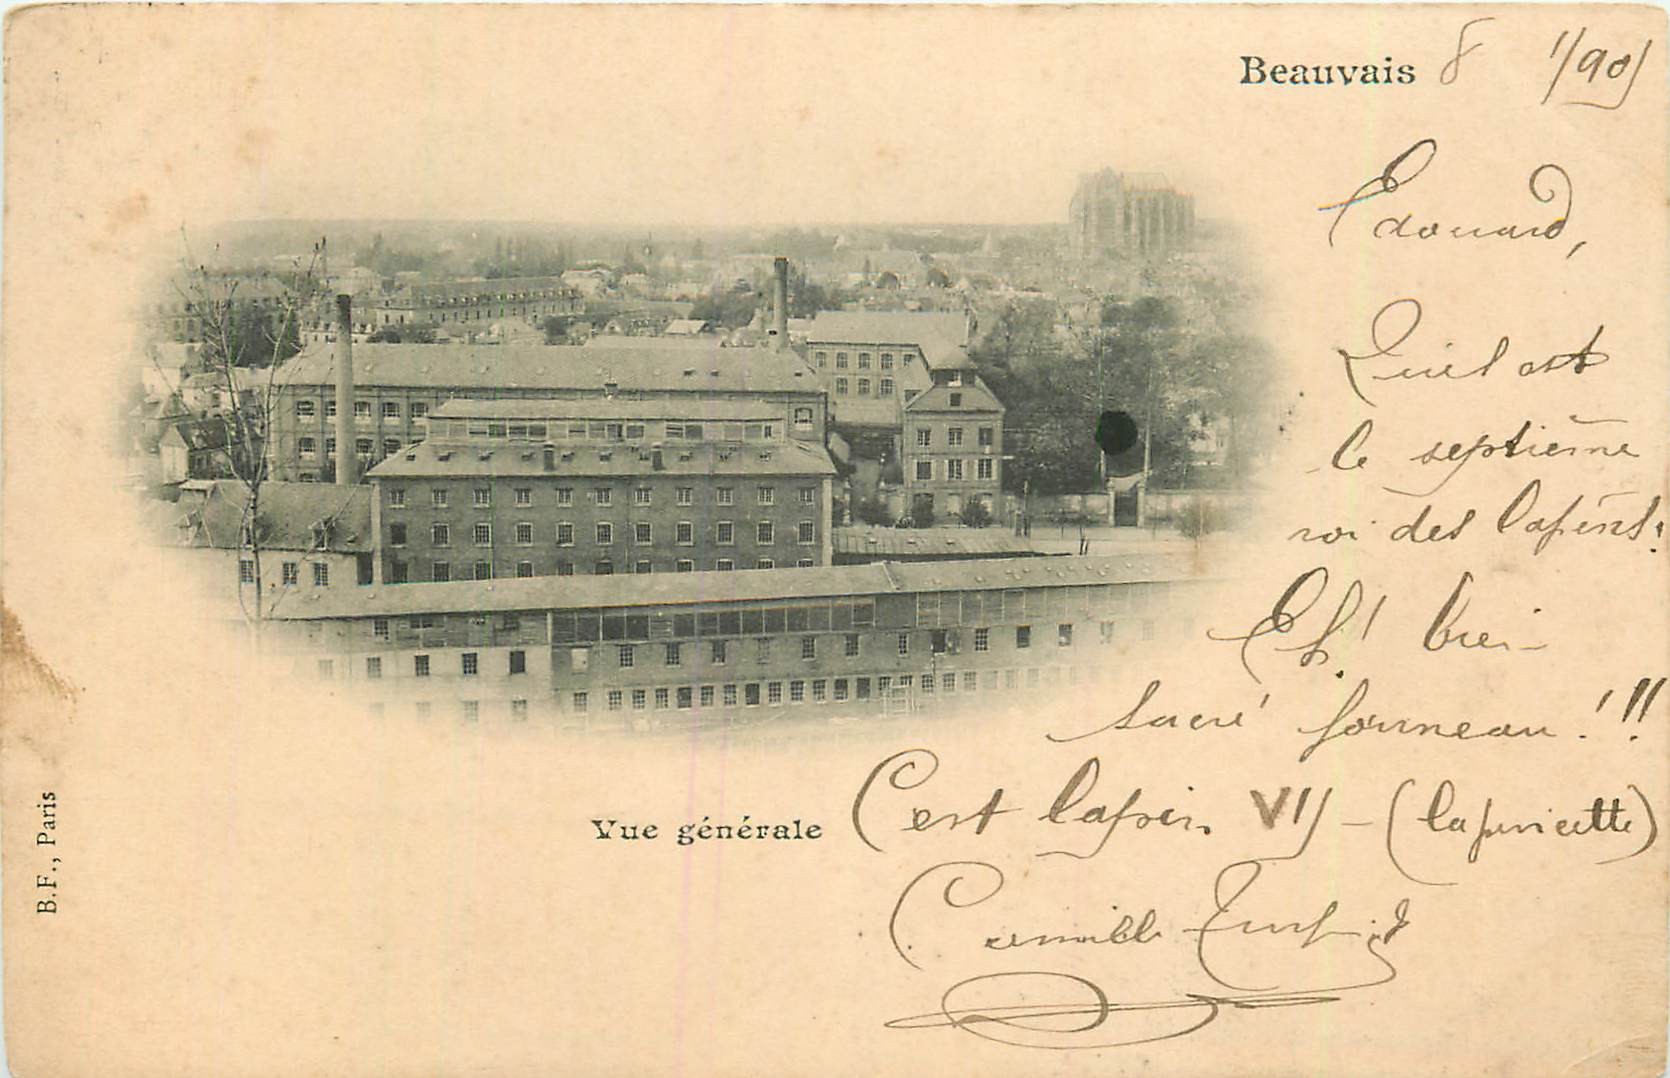 Beauvais 8 1/90
Edouard,
Quel est
le septième
roi des lapins?
Eh! bien
sacré fourneau!!!
C'est lapin VII – (lapinicette)
Camille
Vue générale
B.F., Paris